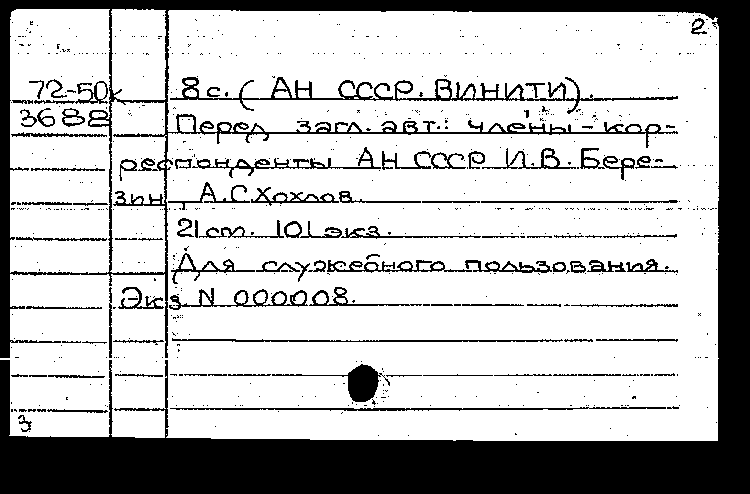 2
72-50к 8 с. ( АН СССР. ВИНИТИ).
3688 Перед загл. авт.: члены-кор-
респонденты АН СССР И.В. Бере-
зин, А.С. Хохлов.
21 см. 101 экз.
Для служебного пользования.
Экз. N 000008.
3